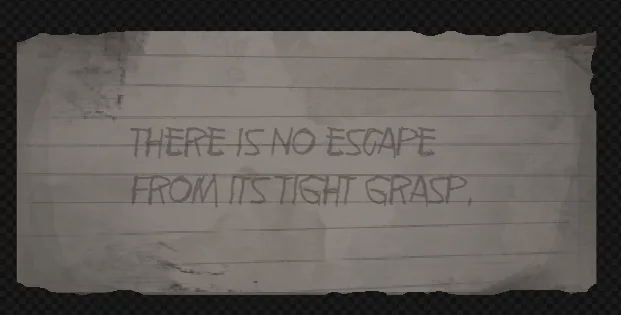 THERE IS NO ESCAPE
FROM ITS TIGHT GRASP.